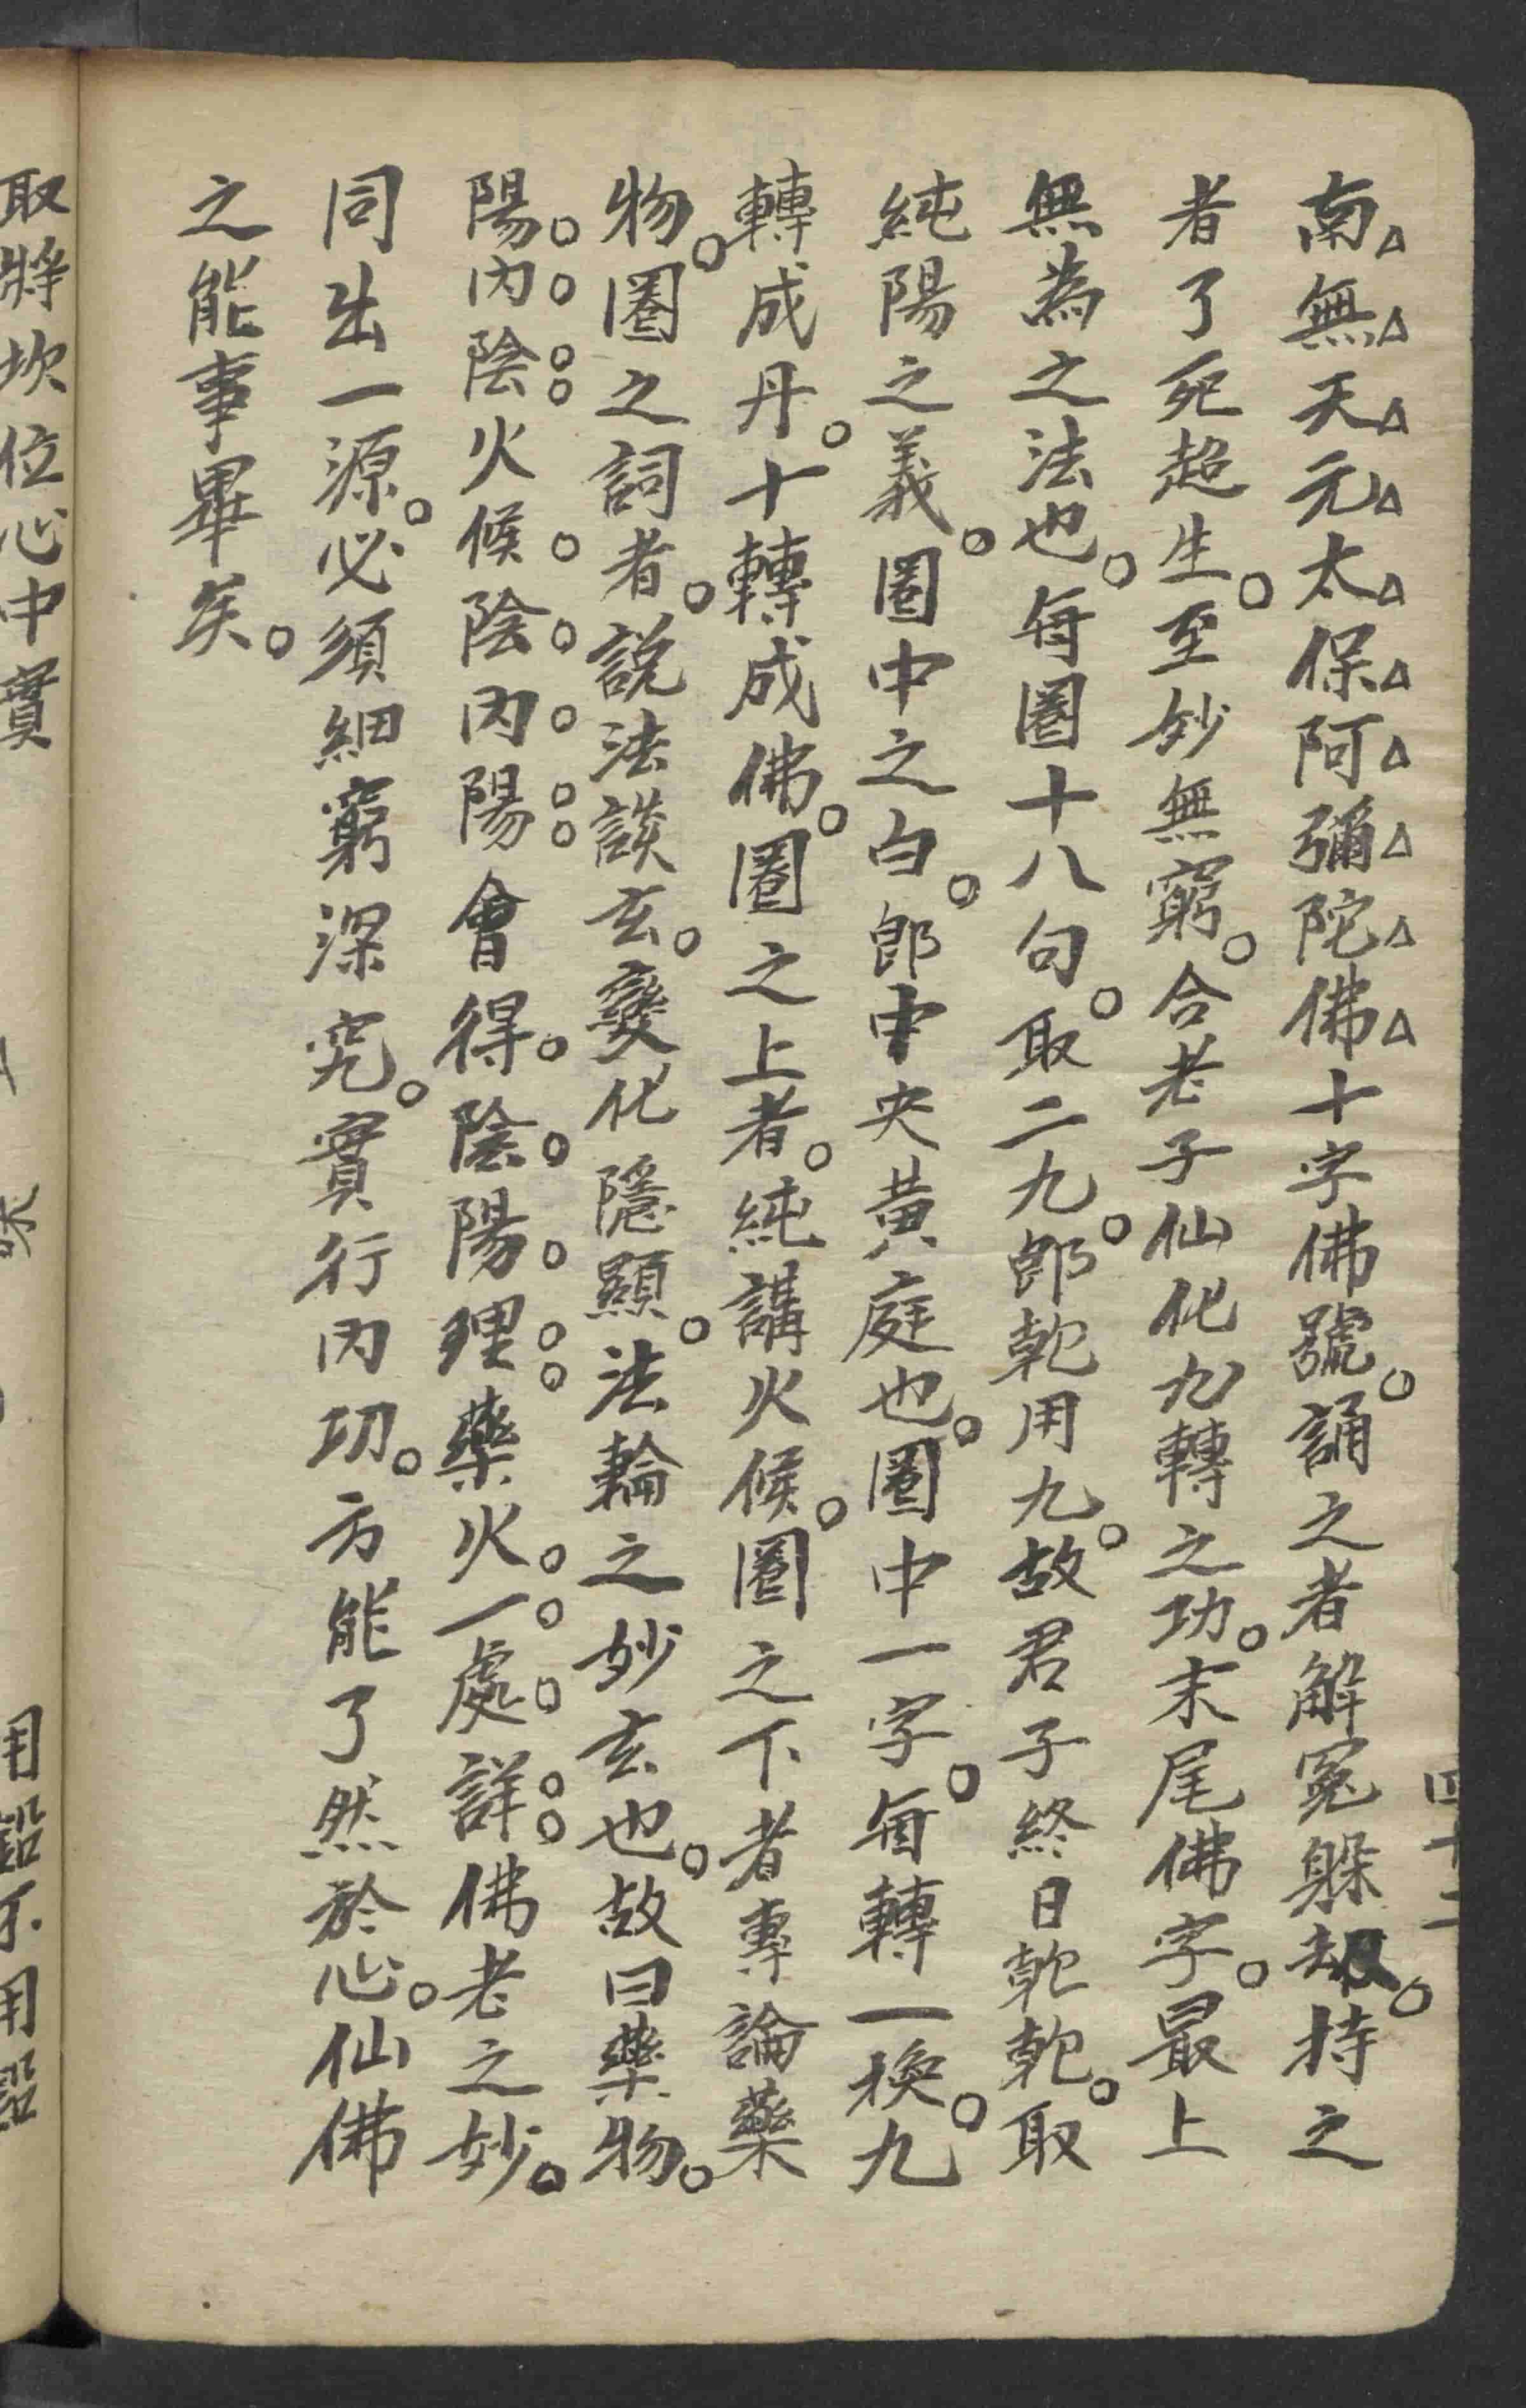 南無天元太保阿彌陀佛十字佛號。誦之者解冤躲劫。持之
者了死超生。至妙無窮。合老子仙化九轉之功。末尾佛字。最上
無為之法也。每圈十八句。取二九。郎乾用九。故君子終日乾乾。取
純陽之義。圈中之白。郎中央黃庭也。圈中一字。每轉一換。九
轉成丹。十轉成佛。圈之上者。純講火候。圈之下者專論藥
物。圈之詞者。說法談玄。變化隱顯。法輪之妙玄也。故曰藥物。
陽。內。陰。火候。陰。內。陽。會得。陰。陽。理。藥火。一。處。詳。佛老之妙。
同出一源。必須細窮深究。實行內功。方能了然於心。仙佛
之能事畢矣。
四十二
取將坎位心中實
用鉛不用鉛